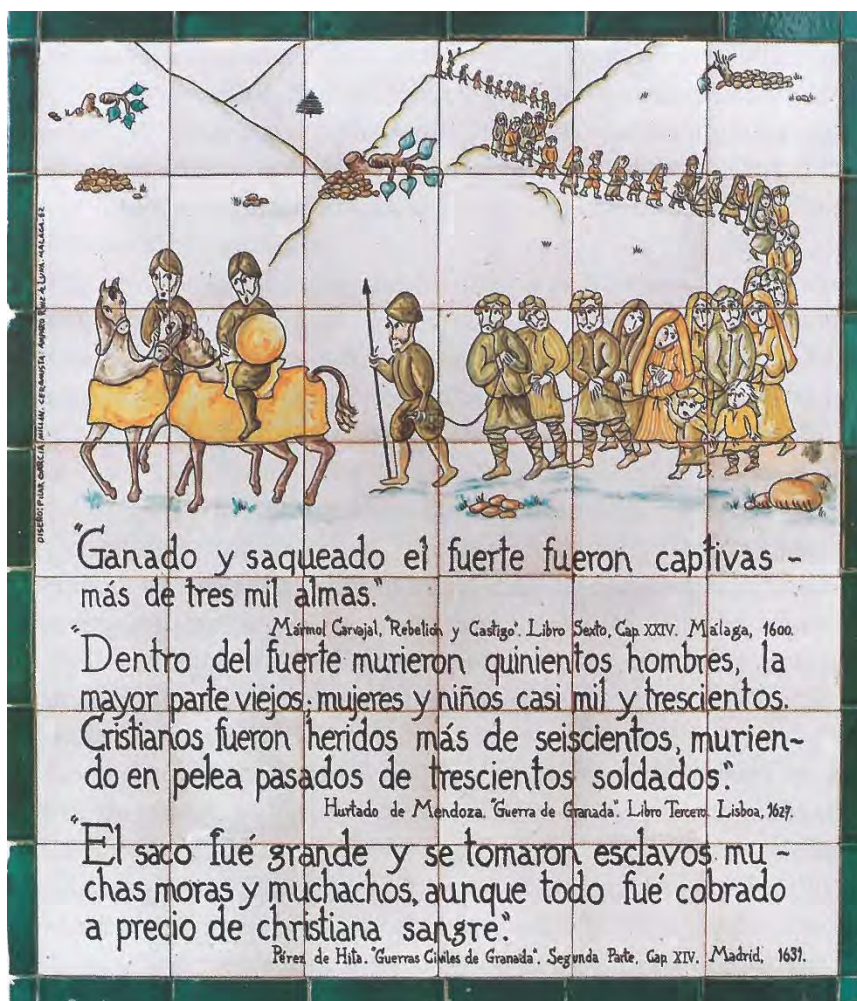 DISEÑO: PILAR GARCÍA MILLÁN. CERAMISTA: AMPARO RUIZ DE LUNA. MÁLAGA-82
"Ganado y saqueado el fuerte fueron captivas -
más de tres mil almas."
Mármol Carvajal, "Rebelión y Castigo". Libro Sexto, Cap. XXIV. Málaga, 1600.
"Dentro del fuerte murieron quinientos hombres, la
mayor parte viejos; mujeres y niños casi mil y trescientos.
Cristianos fueron heridos más de seiscientos, murien-
do en pelea pasados de trescientos soldados."
Hurtado de Mendoza. "Guerra de Granada". Libro Tercero. Lisboa, 1627.
"El saco fué grande y se tomaron esclavos mu -
chas moras y muchachos, aunque todo fué cobrado
a precio de christiana sangre."
Pérez de Hita. "Guerras Civiles de Granada". Segunda Parte, Cap. XIV. Madrid, 1631.